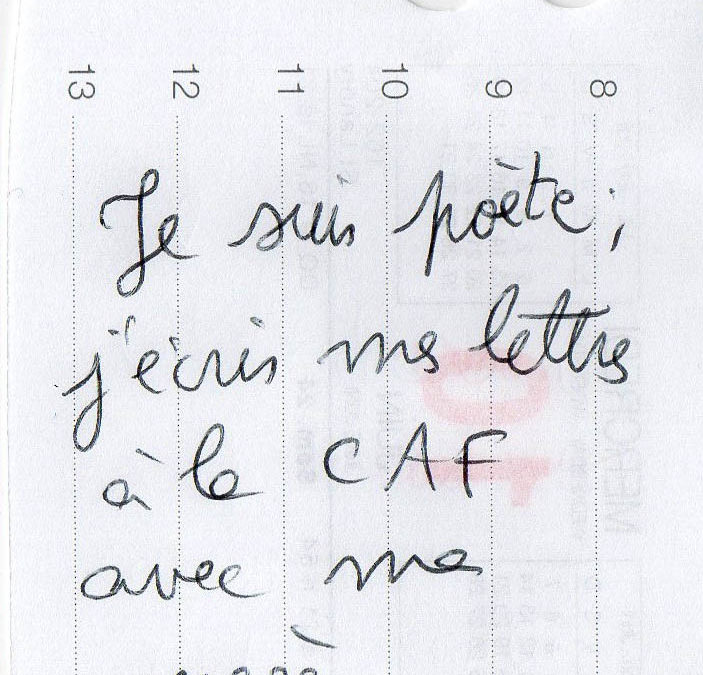 13 12 11 10 9 8
Je suis poète;
j'écris mes lettres
à la CAF
avec ma